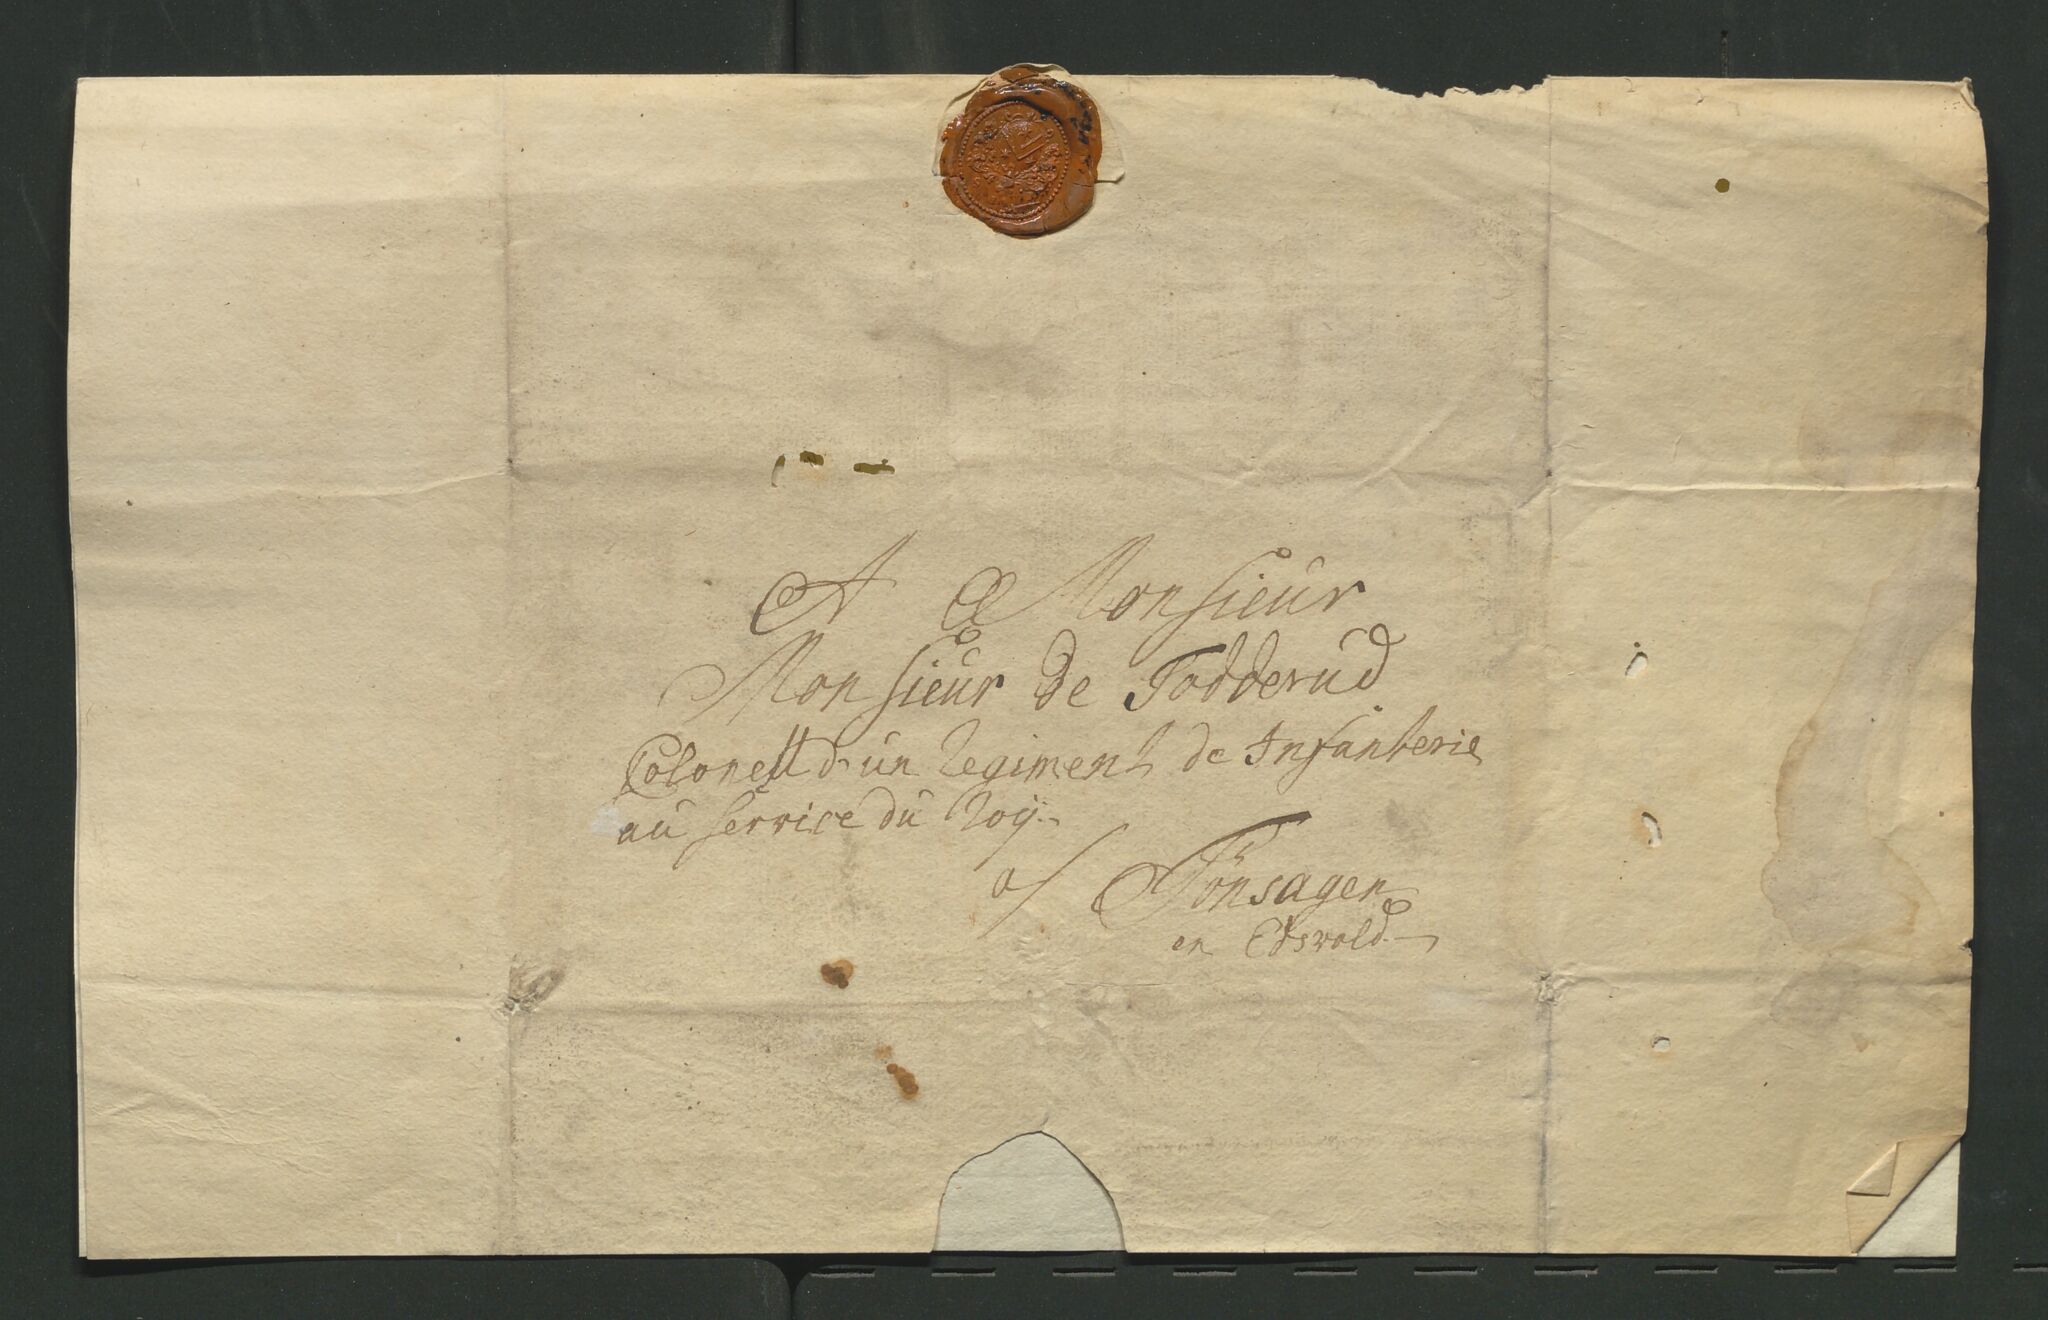 A Monsieur
Monsieur de Todderud
Colonell d'un Regiment de Infanterie
au service du Roy.
a/ Tönsagen
en Edsvold.